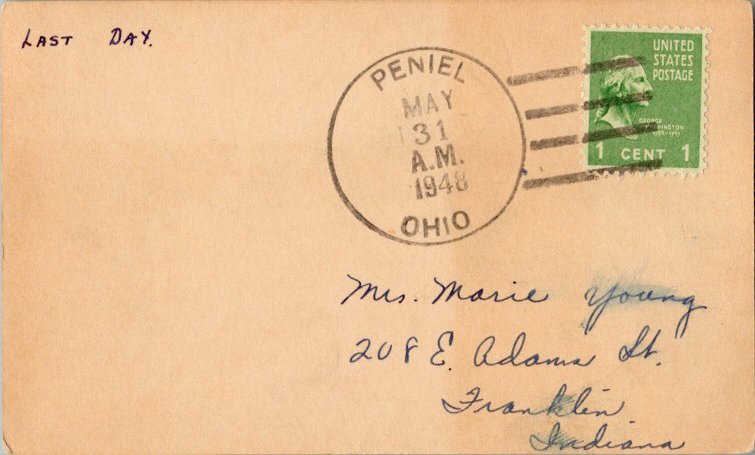 LAST DAY.
PENIEL
MAY
31
A.M.
1948
OHIO
UNITED
STATES
POSTAGE
GEORGE
WASHINGTON
1 CENT 1
Mrs. Marie Young
208 E. Adams St.
Franklin
Indiana